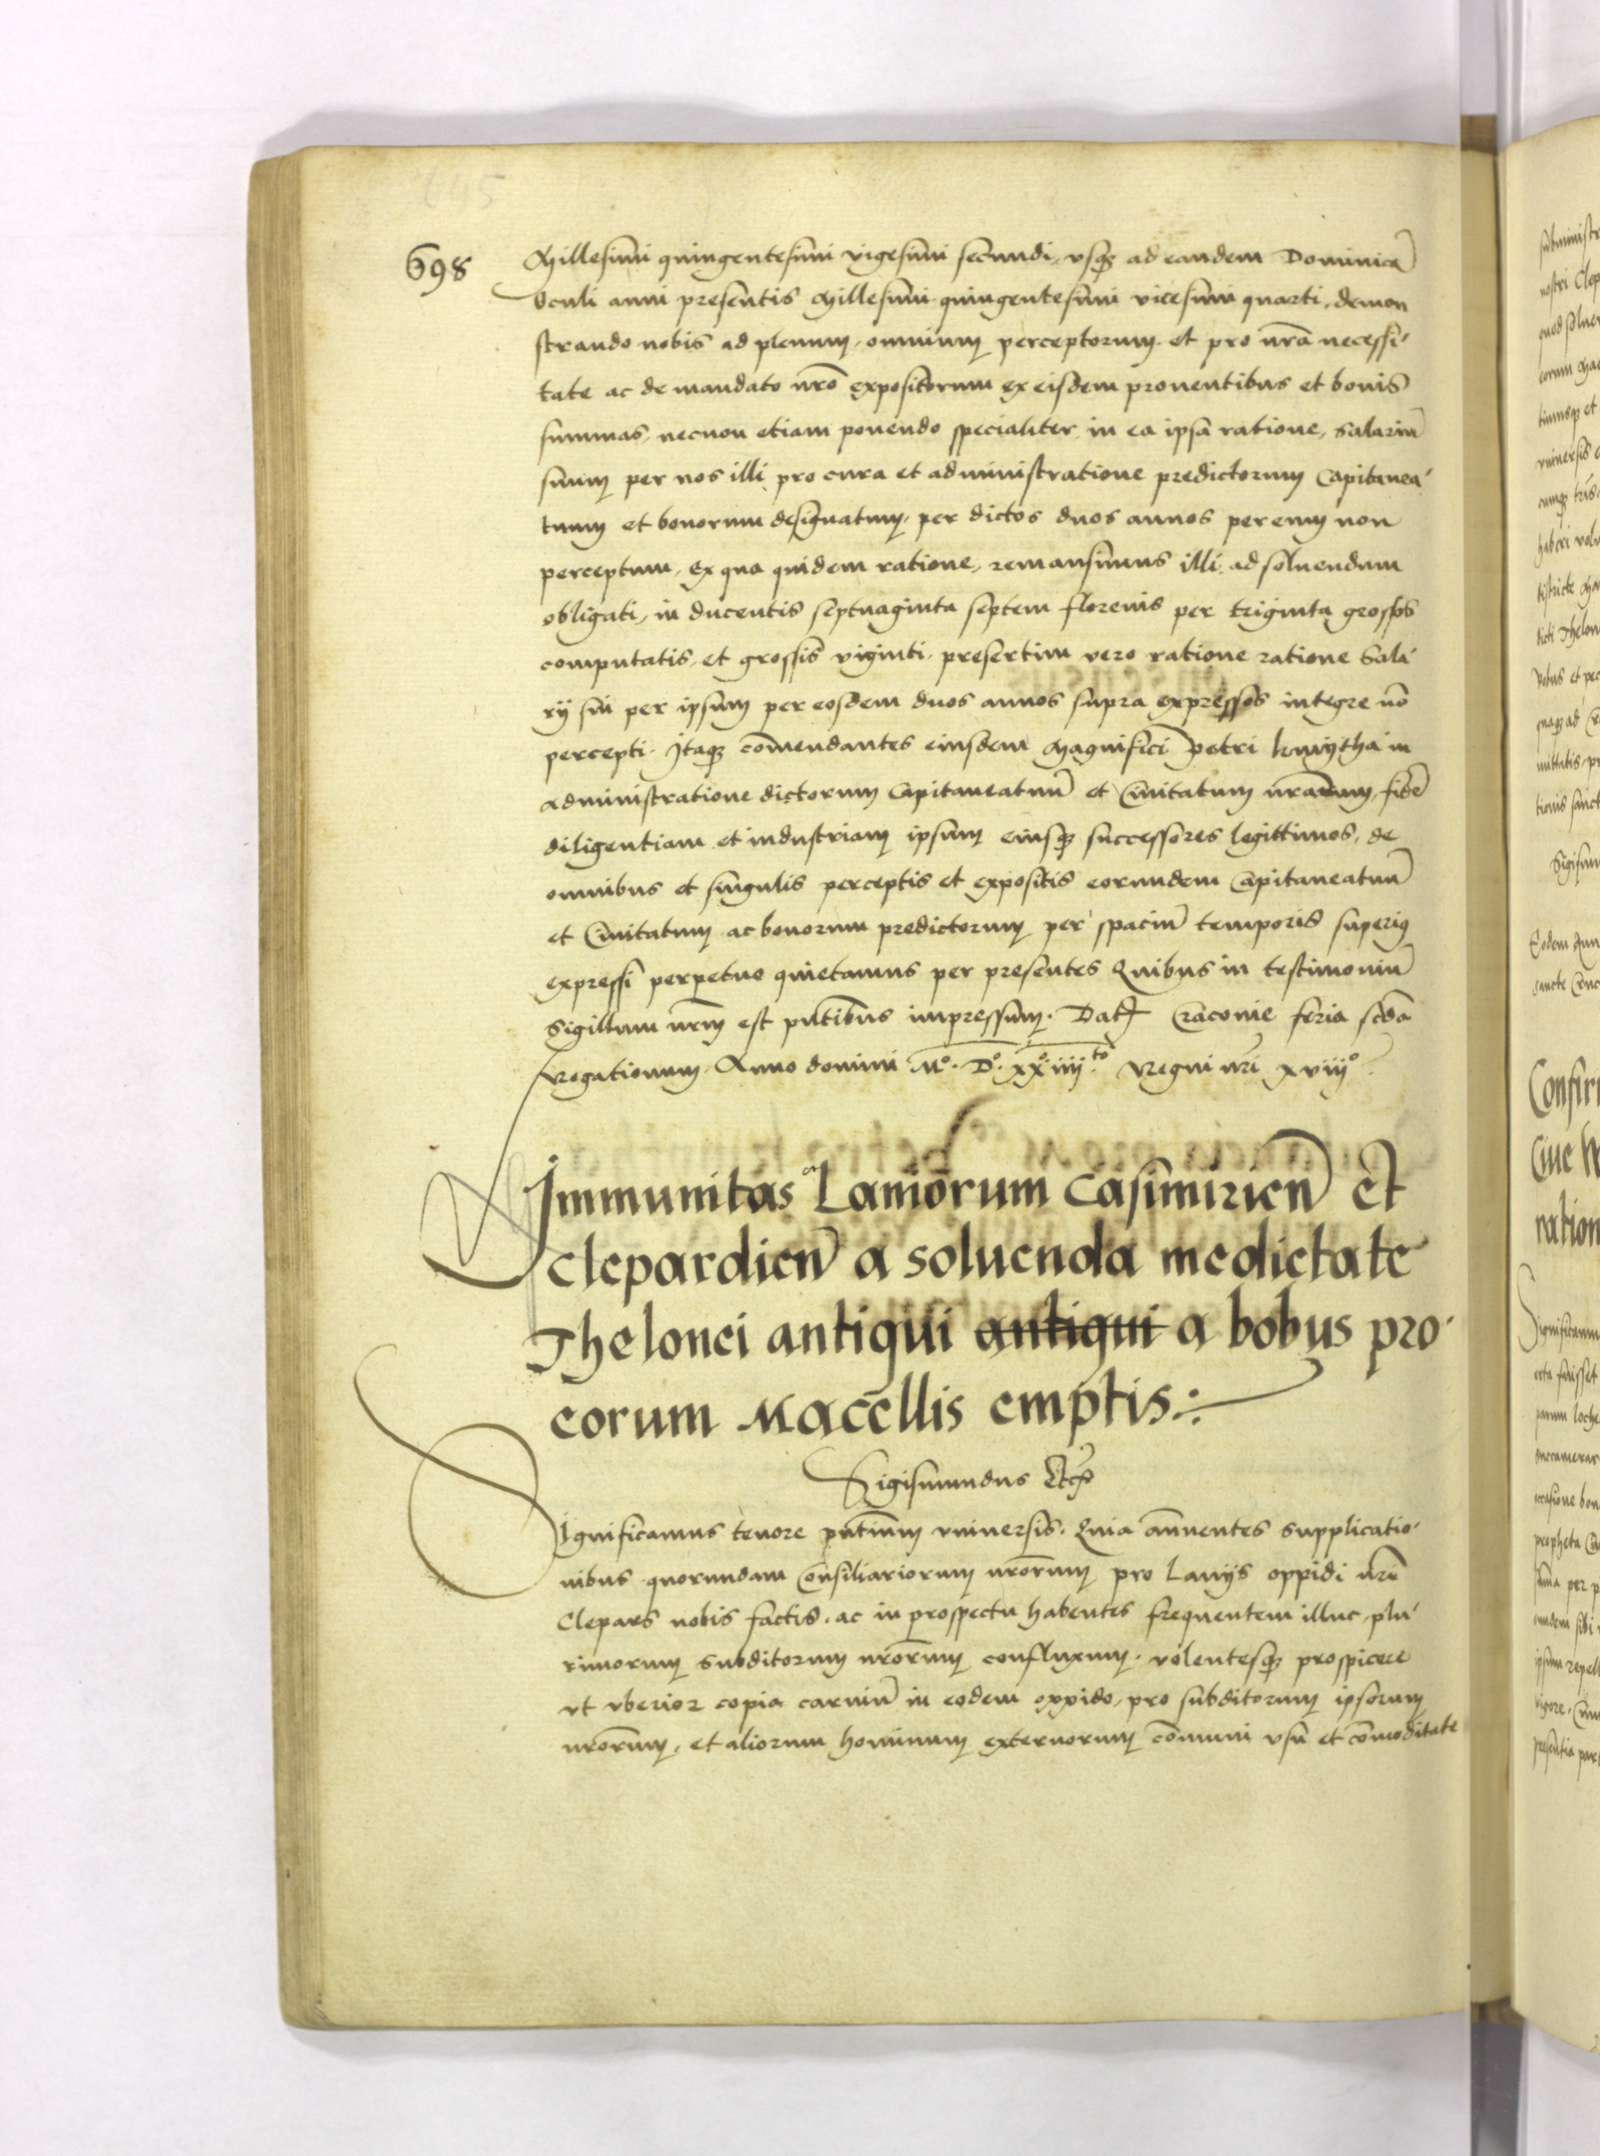 645
698
Millesimi quingentesimi vigesimi secundi, vsq₃ ad eandem Dominicā
Oculi anni presentis Millesimi quingentesimi vicesimi quarti, demon
strando nobis ad plenum, omnium perceptorum et pro nrā necessi-
tate ac de mandato nrō expositorum ex eisdem prouentibus et bonis
summas, necnon etiam ponendo specialiter in ea ipsa ratione, Salariū
suum per nos illi pro cura et administratione predictorum Capitanea-
tuum et bonorum designatum, per dictos duos annos per eum non
perceptum, ex qua quidem ratione, remansimus illi ad soluendum
obligati, in ducentis septuaginta septem florenis per triginta grossos
computatis, et grossis viginti, presertim vero ratione ratione Sala-
rij sui per ipsum per eosdem duos annos supra expressos integre nō
percepti. Itaq₃ cōmendantes eiusdem Magnifici Petri kmytha in
administratione dictorum Capitaneatuū et Ciuitatum nrārum, fidē
diligentiam et industriam ipsum eiusq₃ successores legittimos, de
omnibus et singulis perceptis et expositis eorundem Capitaneatuū
et Ciuitatum ac bonorum predictorum per spaciū temporis superiq
expressi perpetuo quietamus per presentes Quibus in testimoniū
Sigillum nrm̄ est pn̄tibus impressum. Dat̄ Cracouie feria scd̄a
Rogationum Anno domini Mº. Dº. xxº. iiiito Regni nr̄i xviiiº
Immunitas Laniorum Casimirien̄ et
Clepardien̄ a soluenda medietate
Thelonei antiqui antiqui a bobus pro
eorum Macellis emptis
Sigismundus Etc
Significamus tenore pn̄tium vniuersis. Quia annuentes supplicatio-
nibus quorundam Consiliariorum nrōrum pro Lanijs oppidi nrī
Clepars nobis factis, ac in prospectu habentes frequentem illuc plu-
rimorum subditorum nrōrum confluxum, volentesq₃ prospicere
vt vberior copia carniū in eodem oppido, pro subditorum ipsorum
nrōrum, et aliorum hominum externorum cōmuni vsu et cōmoditate